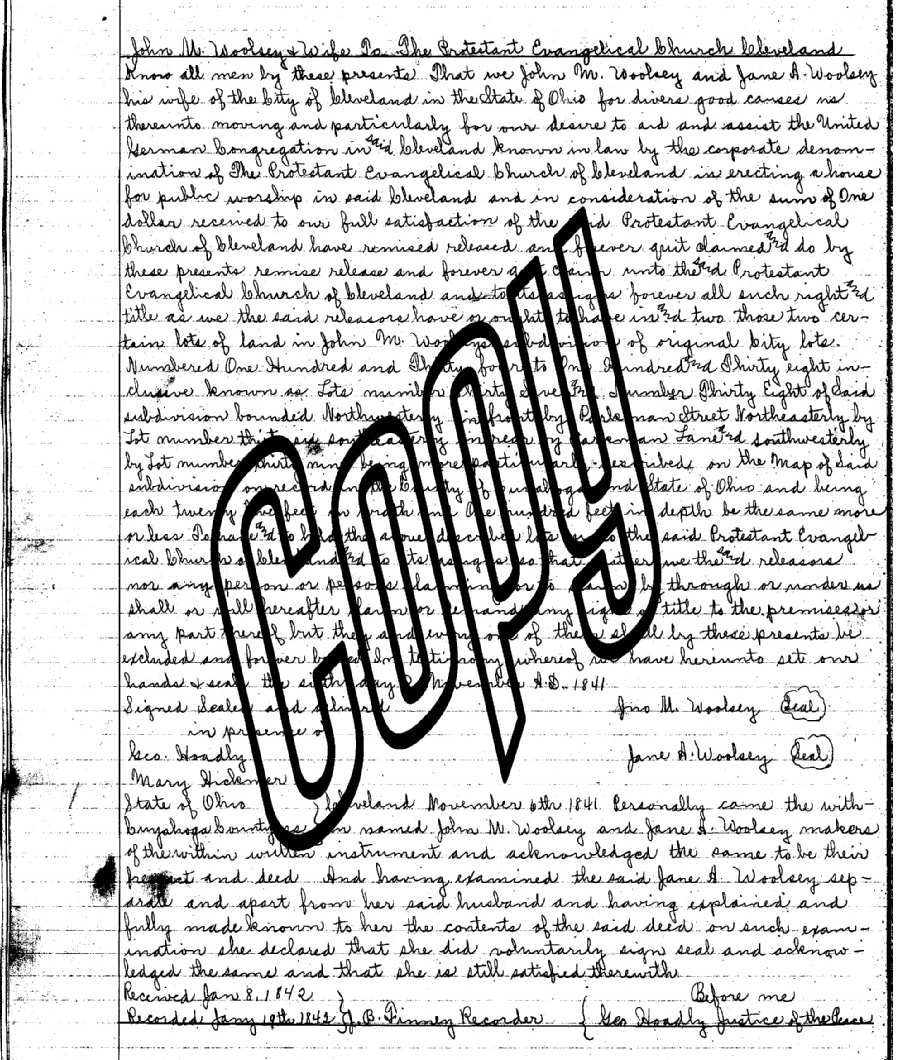 John M. Woolsey & Wife To The Protestant Evangelical Church Cleveland
Know all men by these presents That we John M. Woolsey and Jane A. Woolsey
his wife of the City of Cleveland in the State of Ohio for divers good causes us
thereunto moving and particularly for our desire to aid and assist the United
German Congregation in said Cleveland known in law by the corporate denom-
ination of The Protestant Evangelical Church of Cleveland in erecting a house
for public worship in said Cleveland and in consideration of the sum of One
dollar received to our full satisfaction of the said Protestant Evangelical
Church of Cleveland have remised released and forever quit claimed and do by
these presents remise release and forever quit claim unto the said Protestant
Evangelical Church of Cleveland and to its assigns forever all such right and
title as we the said releasors have or ought to have in and two those two cer-
tain lots of land in John M. Woolseys subdivision of original City lots.
Numbered One Hundred and Thirty four to One Hundred and Thirty eight in-
clusive known as Lots number thirty seven and Number Thirty Eight of Said
subdivision bounded Northwesterly in front by Parkman Street Northeasterly by
Lot number thirty six southeasterly in rear by Parkman Lane and southwesterly
by Lot number thirty nine being more particularly described on the Map of Said
subdivision on record in the County of Cuyahoga and State of Ohio and being
each twenty five feet in breadth and One hundred feet in depth be the same more
or less To have and to hold the above described lots unto the said Protestant Evangel-
ical Church of Cleveland and to its assigns so that neither we the said releasors
nor any person or persons claiming or to claim through or under us
shall or will hereafter claim or demand any right or title to the premises or
any part thereof but they and every one of them shall by these presents be
excluded and forever barred In testimony whereof we have hereunto set our
hands & seals the sixth day of November A.D. 1841
Signed Sealed and delivered Jno M. Woolsey Seal
in presence of
Geo. Hoadly Jane A. Woolsey Seal
Mary
State of Ohio } Cleveland November 6th 1841 Personally came the with-
Cuyahoga County ss in named John M. Woolsey and Jane A. Woolsey makers
of the within written instrument and acknowledged the same to be their
free act and deed And having examined the said Jane A. Woolsey sep-
arate and apart from her said husband and having explained and
fully made known to her the contents of the said deed on such exam-
ination she declared that she did voluntarily sign seal and acknow-
ledged the same and that she is still satisfied therewith
Received Jan 8, 1842 } Before me
Recorded Jany 19th 1842 } J. B. Finney Recorder { Geo Hoadly Justice of the Peace
Copy